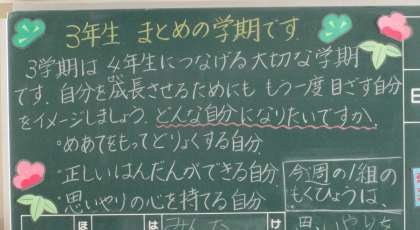 3年生 まとめの学期です
3学期は 4年生につなげる大切な学期
です。自分を成長させるためにも もう一度 目ざす自分
をイメージしましょう。どんな自分になりたいですか。
・めあてをもってどりょくする自分
・正しいはんだんができる自分
・思いやりの心を持てる自分
今週の1組の
もくひょうは、
ほ
は
みんな
け
思いやりを